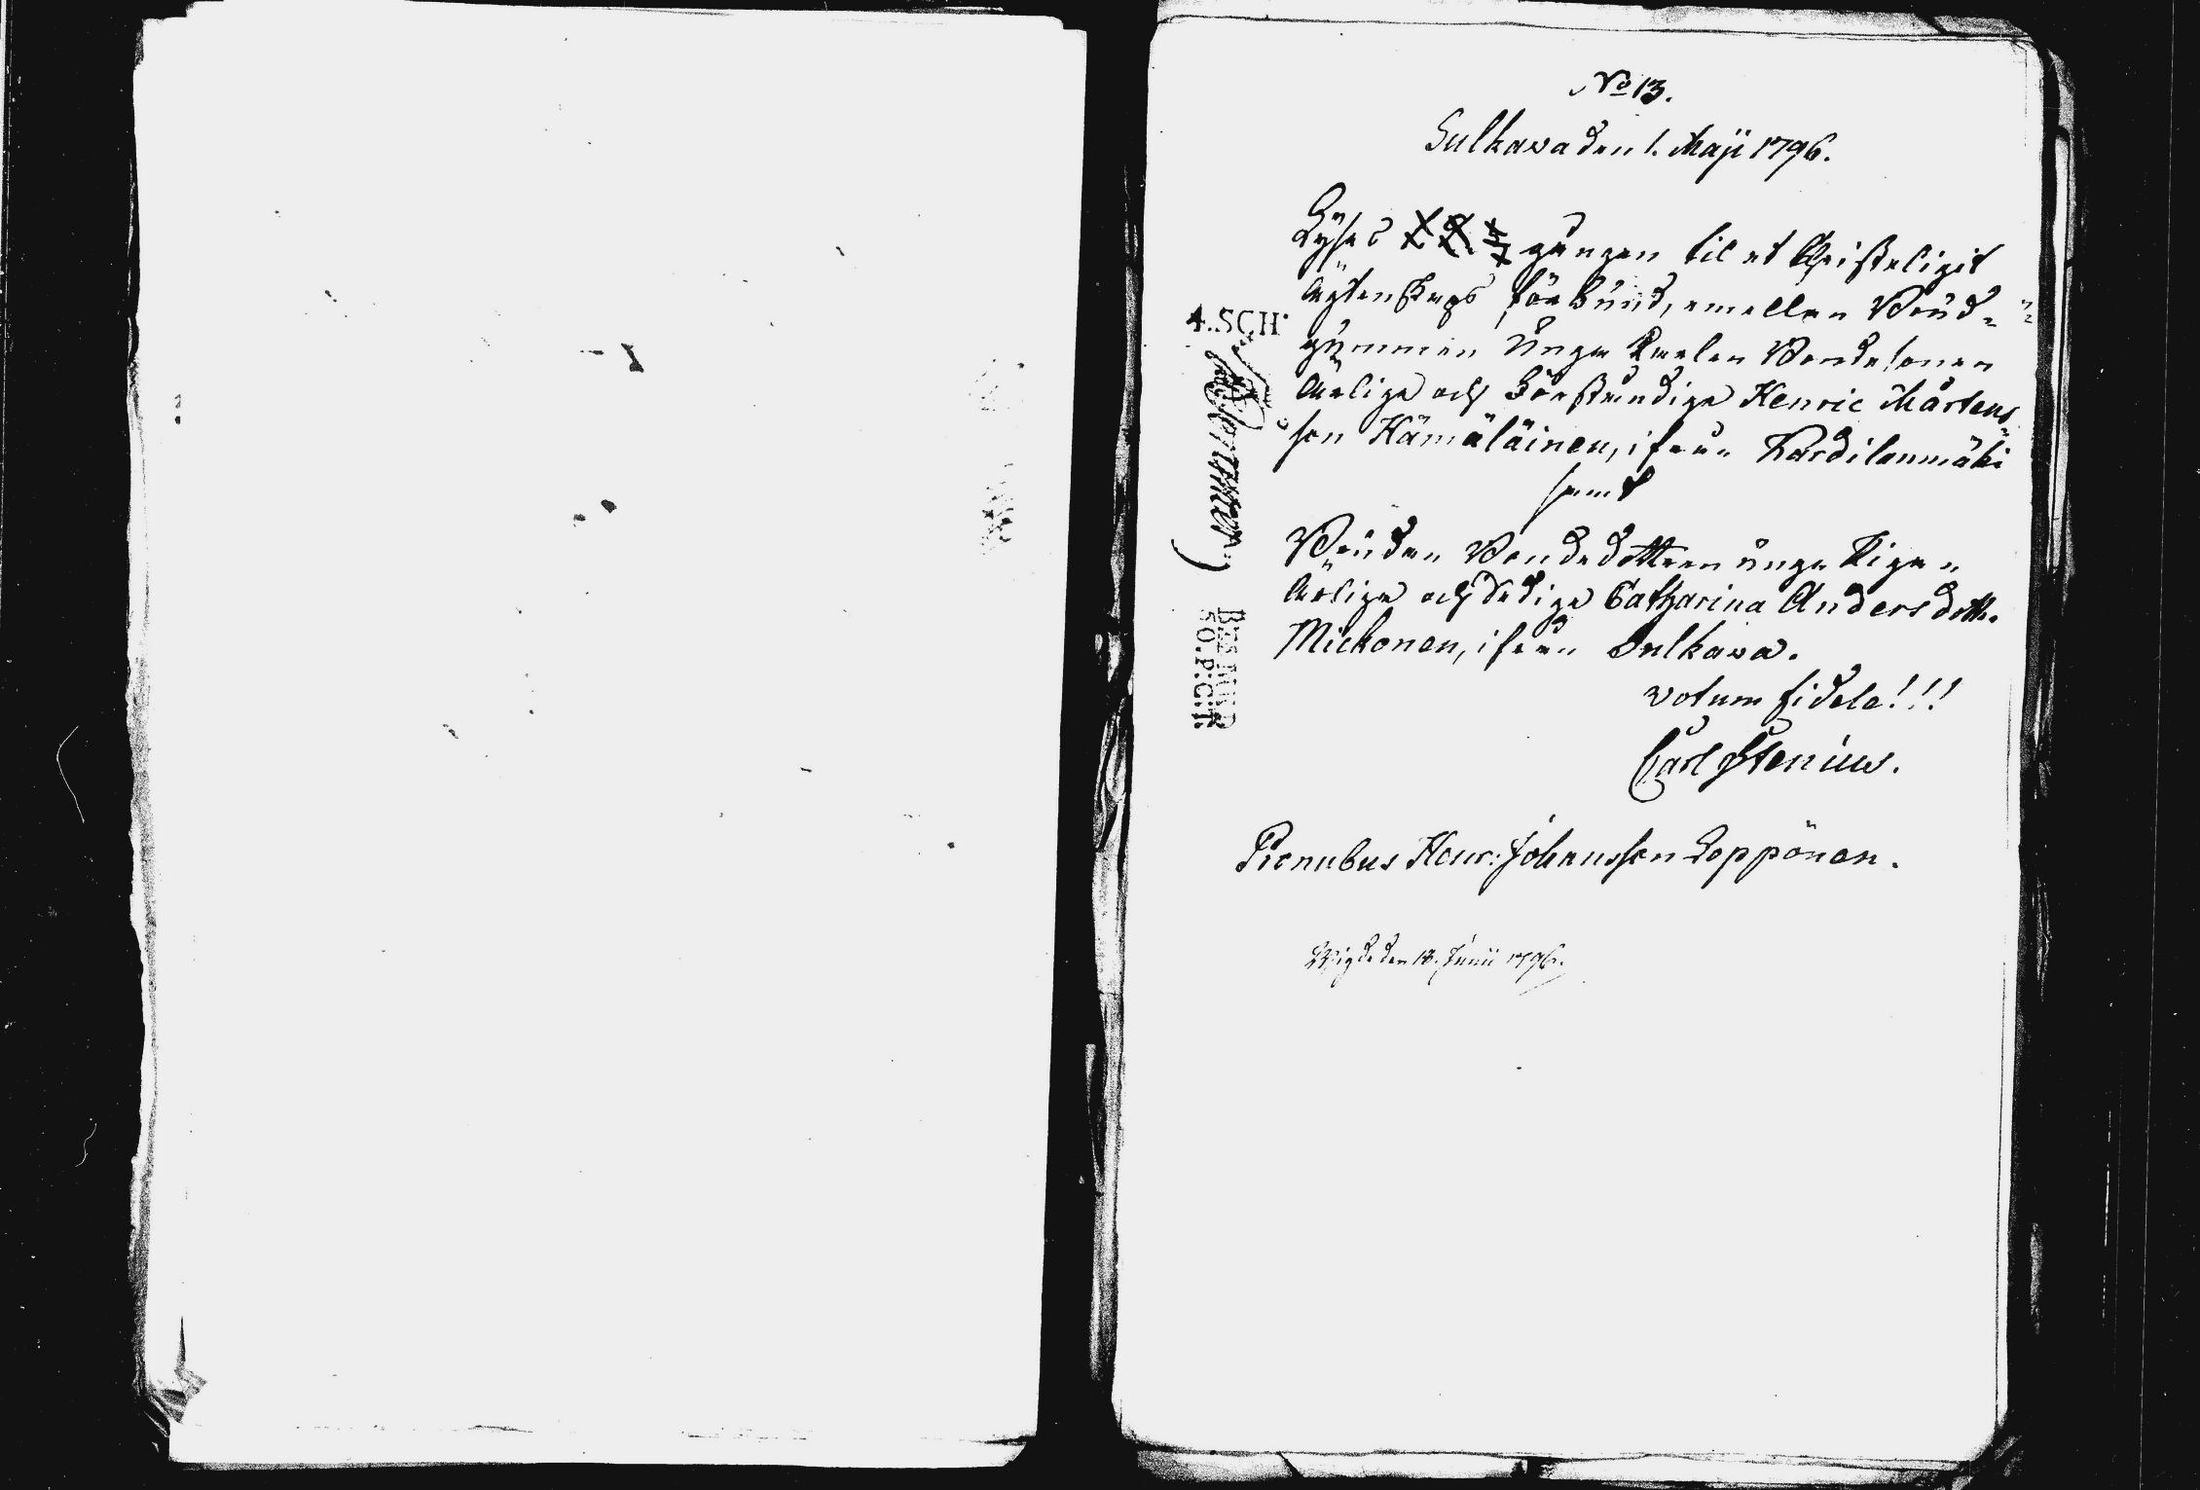 No 13.
Sulkava den 1. Maji 1796.
Lyses 1 2 3 gången til et Christeligit
Ägtenskaps förbund, emellan Brud-
gummen Unga Karlen Bondesonen
Ärlige och Förståndige Henric Mårtens
son Hämäläinen, ifrån Kardilanmäki
samt
Bruden Bondedottren unga Pigan
Ärliga och Dydiga Catharina Anders dotter
Mickonen, ifrån Sulkava.
votum fidele!!!
Carl Stenius.
Pronubus Henr: Johansson Loppönen.
Wigde den 18. Junii 1796.
4. SCH.
50. P:C:T: